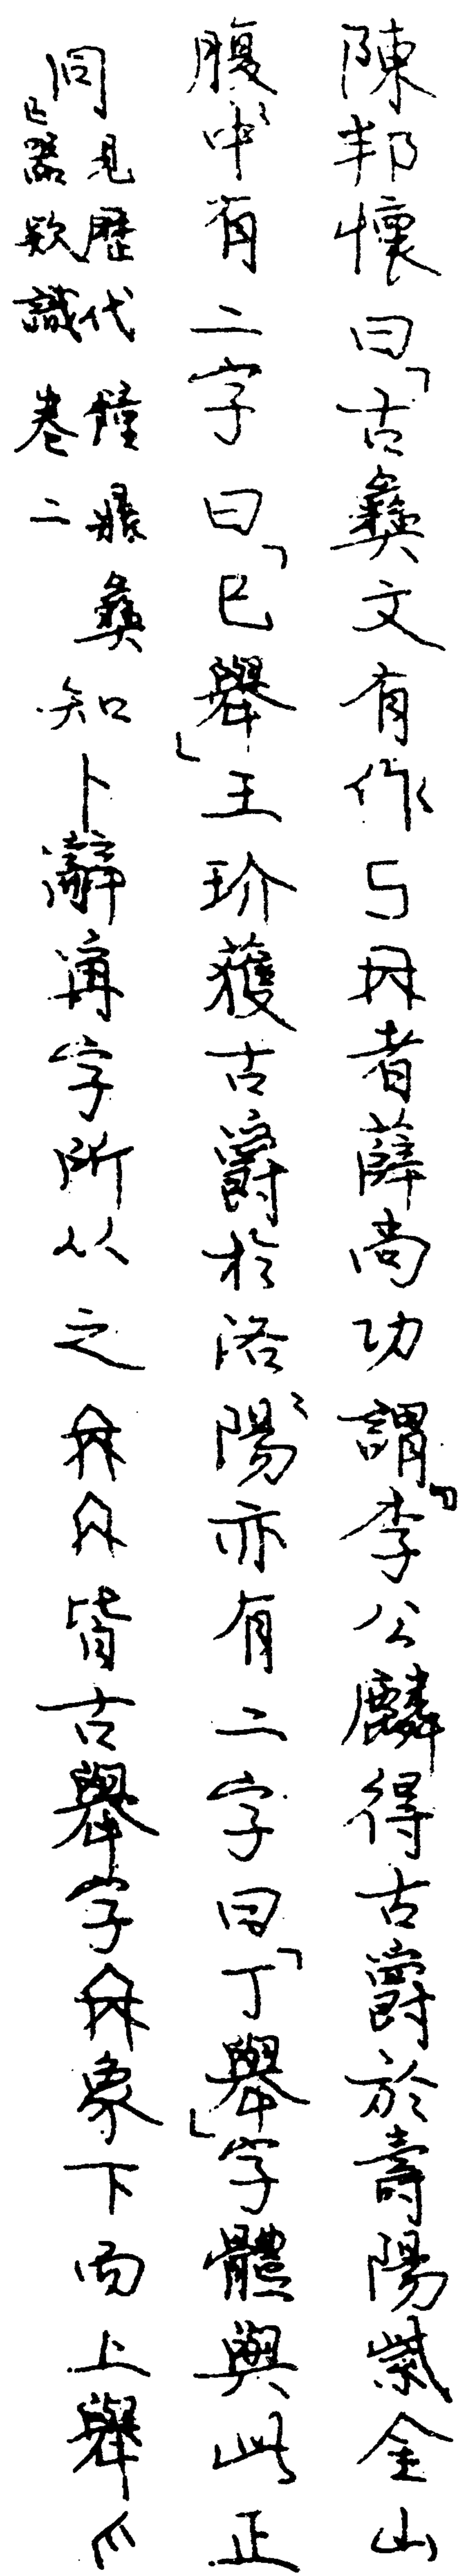 陳邦懷曰「古彝文有作者薛尚功謂『李公麟得古爵於壽陽紫金山
腹中有二字曰「已舉」王玠獲古爵於洛陽亦有二字曰「丁舉」字體與此正
同見歷代鐘鼎彝器款識卷二知卜辭冓字所以之皆古舉字象下而上舉爪